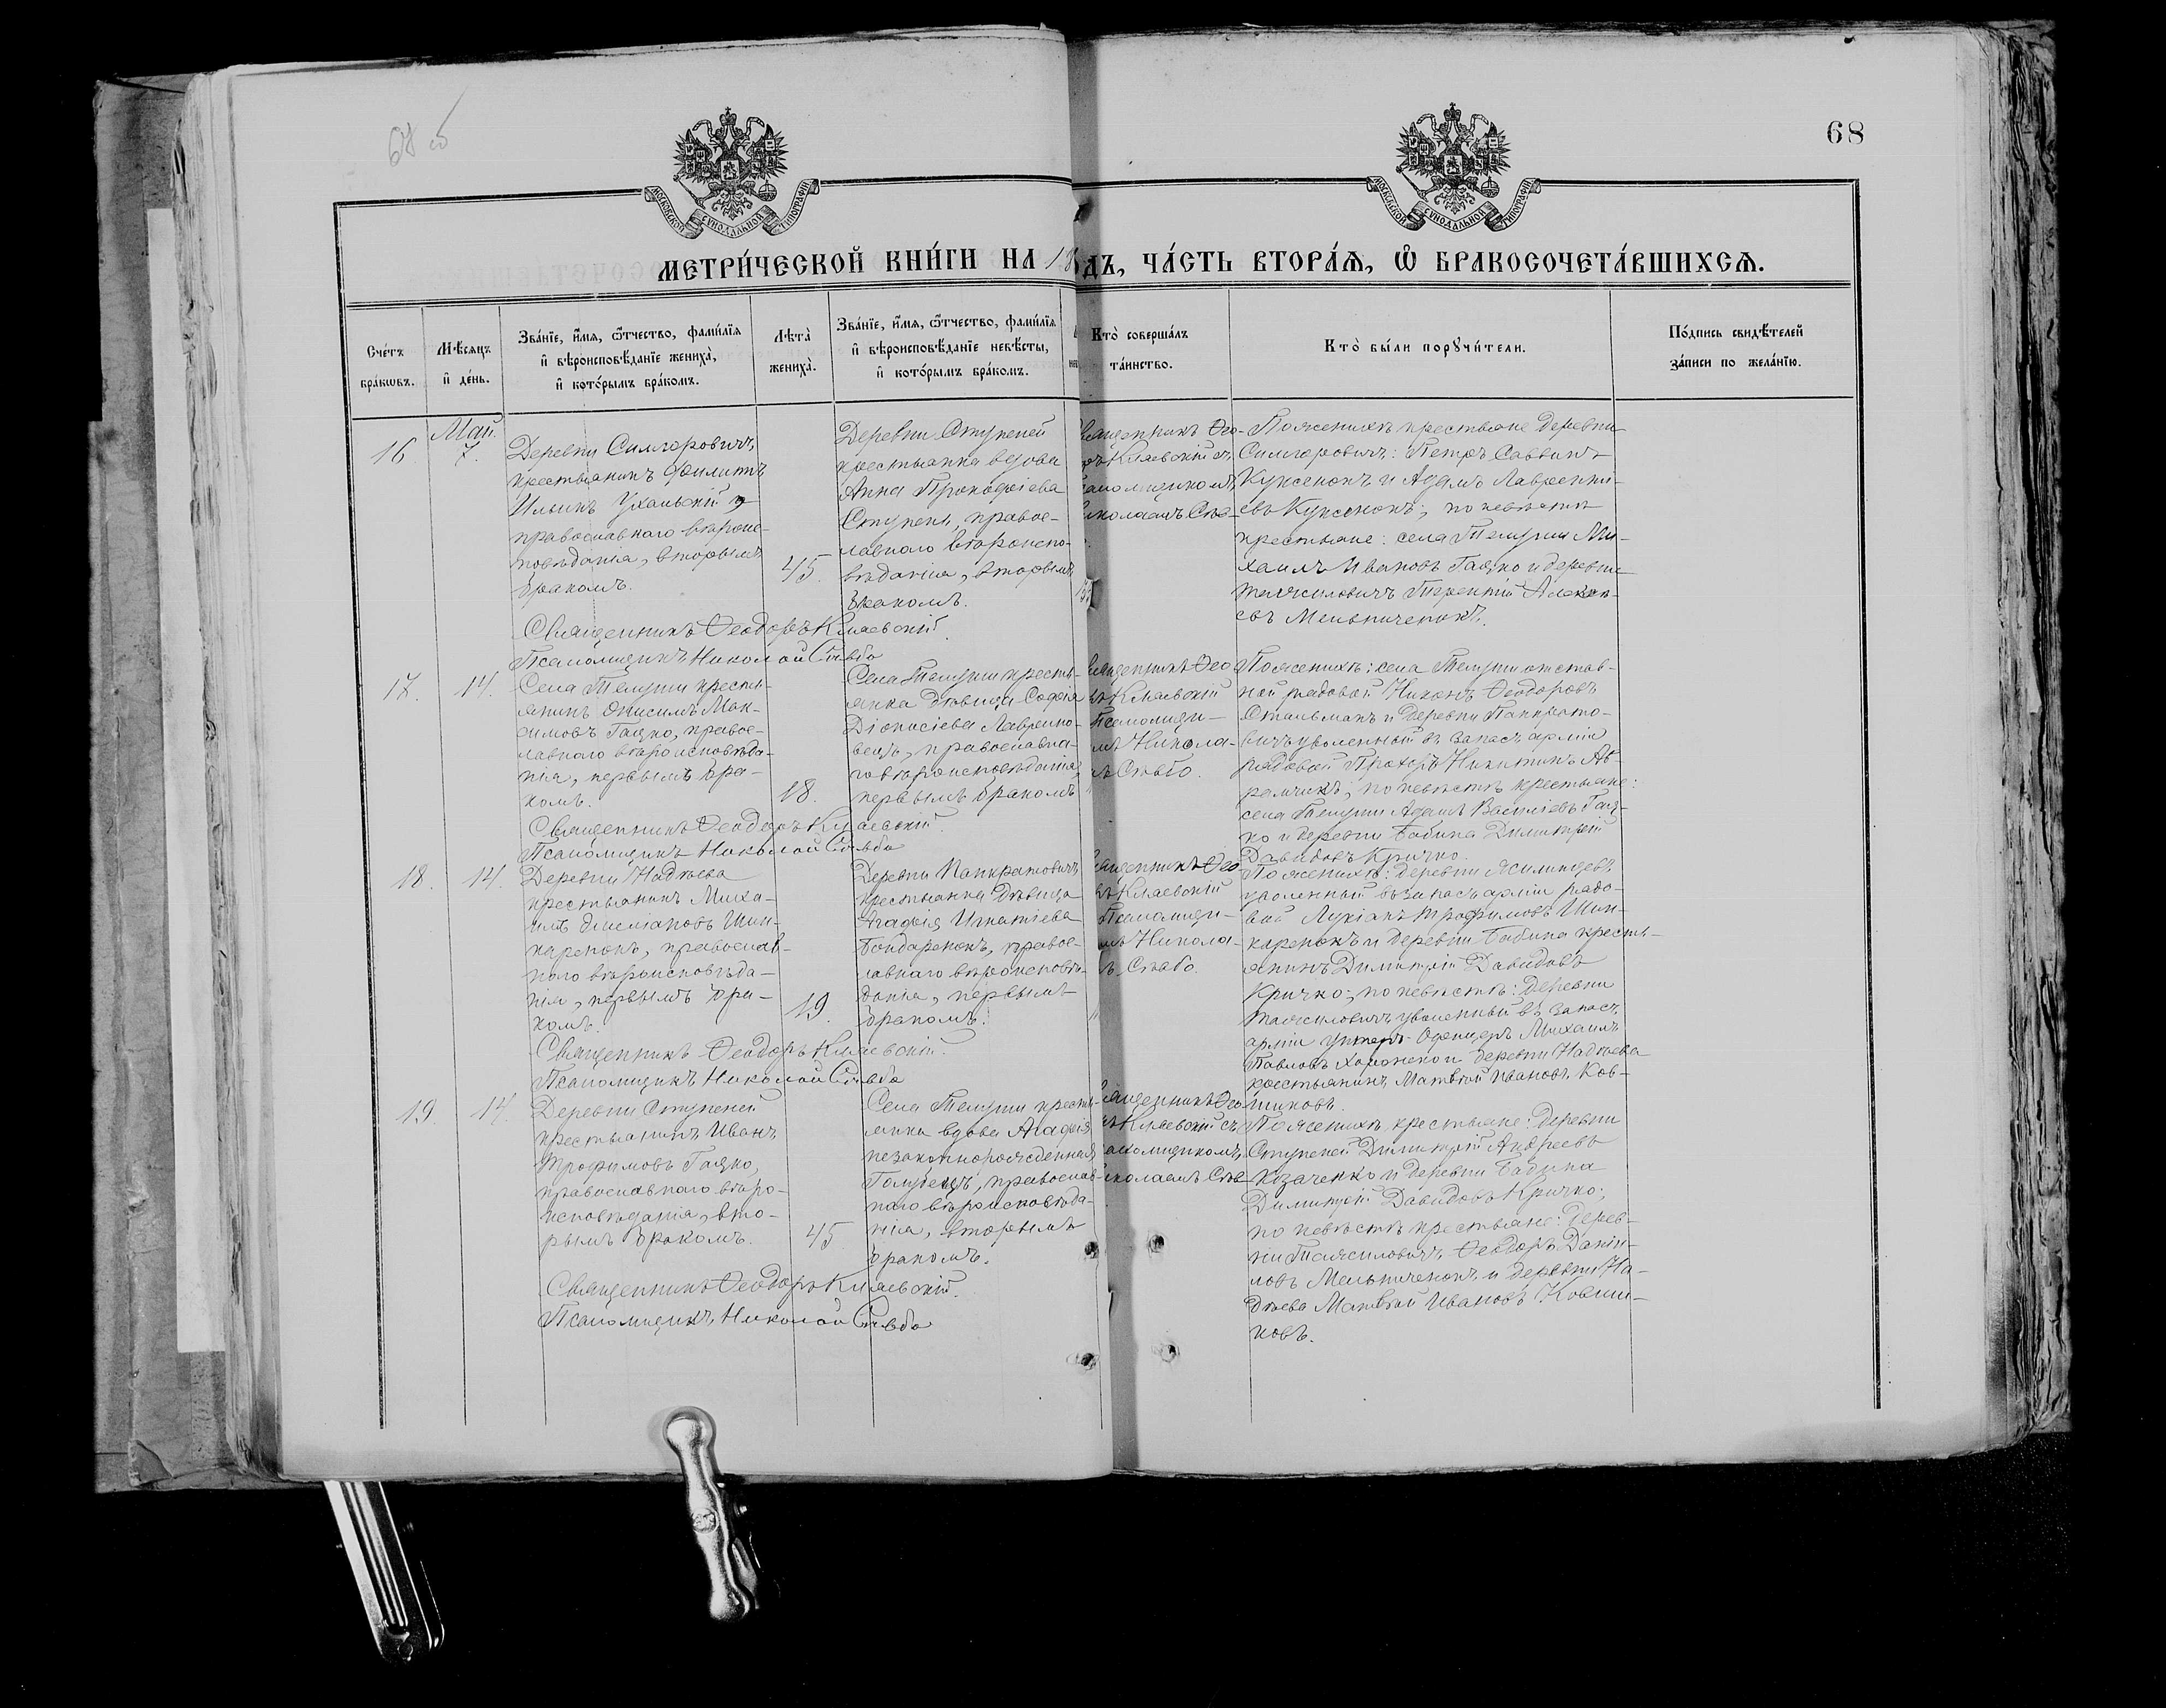 68
МОСКОВСКОЙ СУНОДАЛЬНОЙ ТИПОГРАФІИ
МОСКОВСКОЙ СУНОДАЛЬНОЙ ТИПОГРАФІИ
МЕТРИ́ЧЕСКОЙ КНИ́ГИ НА 18
ДЪ, ЧА́СТЬ ВТОРА́Ѧ, Ѽ БРАКОСОЧЕТА́ВШИХСѦ.
Сче́тъ
бра́кѡвъ.
Мѣ́сяцъ
и҆ де́нь.
Зва́нїе, и҆́мя, ѻ҆́тчество, фами́лїя
и҆ вѣроисповѣ́данїе жениха̀,
и҆ кото́рымъ бра́комъ.
Лѣта̀
жениха̀.
Зва́нїе, и҆́мя, ѻ҆́тчество, фами́лїя
и҆ вѣроисповѣ́данїе невѣ́сты,
и҆ кото́рымъ бра́комъ.
Кто̀ соверша́лъ
та́инство.
Кто̀ бы́ли порꙋчи́тели.
По́дпись свидѣ́телей
за́писи по жела́нїю.
16
Май
7.
Деревни Симгорович
крестьянинъ Филиппъ
Ильинъ Ухальскій
православнаго вѣроис-
повѣданія, вторымъ
бракомъ.
45.
Деревни Ступеней
крестьянка вдова
Анна Прокофіева
Ступень, правос-
лавнаго вѣроиспо-
вѣданія, вторымъ
бракомъ.
ященникъ Ѳео-
ръ Кляевскій съ
саломщикомъ
иколаемъ Стѣ-
По женихѣ крестьяне деревни
Симгорович: Петръ Саввинъ
Куксенокъ и Адамъ Лавренті-
евъ Куксенокъ; по невѣстѣ
крестьяне: села Телуши Ми-
хаилъ Ивановъ Гацко и деревни
Тажиловичъ Терентій Алексѣ-
евъ Мельниченокъ.
Священникъ Ѳеодоръ Кляевскій.
Псаломщикъ Николай Стѣбо
17.
14.
Села Телуши кресть-
янинъ Онисимъ Мак-
симовъ Гацко, правос-
лавнаго вѣроисповѣда-
нія, первымъ бра-
комъ.
18.
Села Телуши кресть-
янка дѣвица Софія
Діонисіева Лаврино-
вецъ, православна-
го вѣроисповѣданія,
первымъ бракомъ
ященникъ Ѳео
ъ Кляевскій
Псаломщи-
мъ Никола-
ъ Стѣбо.
По женихѣ: села Телуши отстав-
ной рядовой Никонъ Ѳеодоровъ
Стальмахъ и деревни Панкрато-
вичъ уволенный въ запасъ арміи
рядовой Прохоръ Никитинъ Аб-
рамчикъ, по невѣстѣ крестьяне:
села Телуши Адамъ Василіевъ Гац-
ко и деревни Бабина Димитрій
Давидовъ Кричко.
Священникъ Ѳеодоръ Кляевскій.
Псаломщикъ Николай Стѣбо
18.
14.
Деревни Надѣева
крестьянинъ Миха-
илъ Емеліановъ Шин-
каренокъ, православ-
наго вѣроисповѣда-
нія, первымъ бра-
комъ.
19.
Деревни Панкратовичъ
крестьянка дѣвица
Агафія Игнатіева
Бондаренокъ, правос-
лавнаго вѣроисповѣ-
данія, первымъ
бракомъ.
ященникъ Ѳео
ъ Кляевскій
Псаломщи-
мъ Никола-
ъ Стѣбо.
По женихѣ: деревни Ясилинцевъ
уволенный въ запасъ арміи рядо-
вой Лукіанъ Трофимовъ Шин-
каренокъ и деревни Бабина кресть-
янинъ Димитрій Давидовъ
Кричко; по невѣстѣ: деревни
Тажиловичъ уволенный въ запасъ
арміи унтеръ-офицеръ Михаилъ
Павловъ и деревни Надѣева
крестьянинъ Матвѣй Ивановъ Ков-
шиковъ.
Священникъ Ѳеодоръ Кляевскій.
Псаломщикъ Николай Стѣбо
19.
14.
Деревни Ступеней
крестьянинъ Иванъ
Трофимовъ Гацко,
православнаго вѣро-
исповѣданія, вто-
рымъ бракомъ.
45
Села Телуши кресть-
янка вдова Агафія
незаконнорожденная
Голубецъ, православ-
наго вѣроисповѣда-
нія, вторымъ
бракомъ.
ященникъ Ѳео
ъ Кляевскій съ
аломщикомъ
иколаемъ Стѣ-
По женихѣ крестьяне: деревни
Ступеней Димитрій Андреевъ
Казаченко и деревни Бабина
Димитрій Давидовъ Кричко;
по невѣстѣ крестьяне: дерев-
ни Тажиловичъ Ѳеодоръ Даніи-
ловъ Мельниченокъ и деревни На-
дѣева Матвѣй Ивановъ Ковши-
ковъ.
Священникъ Ѳеодоръ Кляевскій.
Псаломщикъ Николай Стѣбо